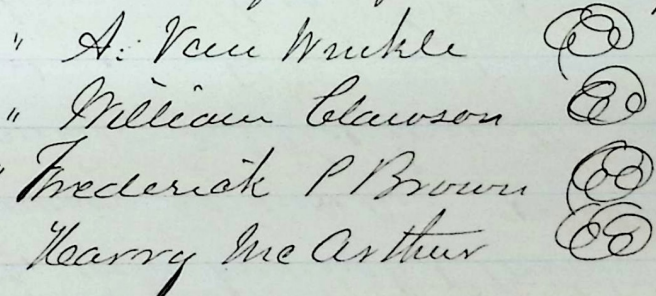 " A. Van Winkle
" William Clawson
" Frederick P Brown
Harry Mc Arthur